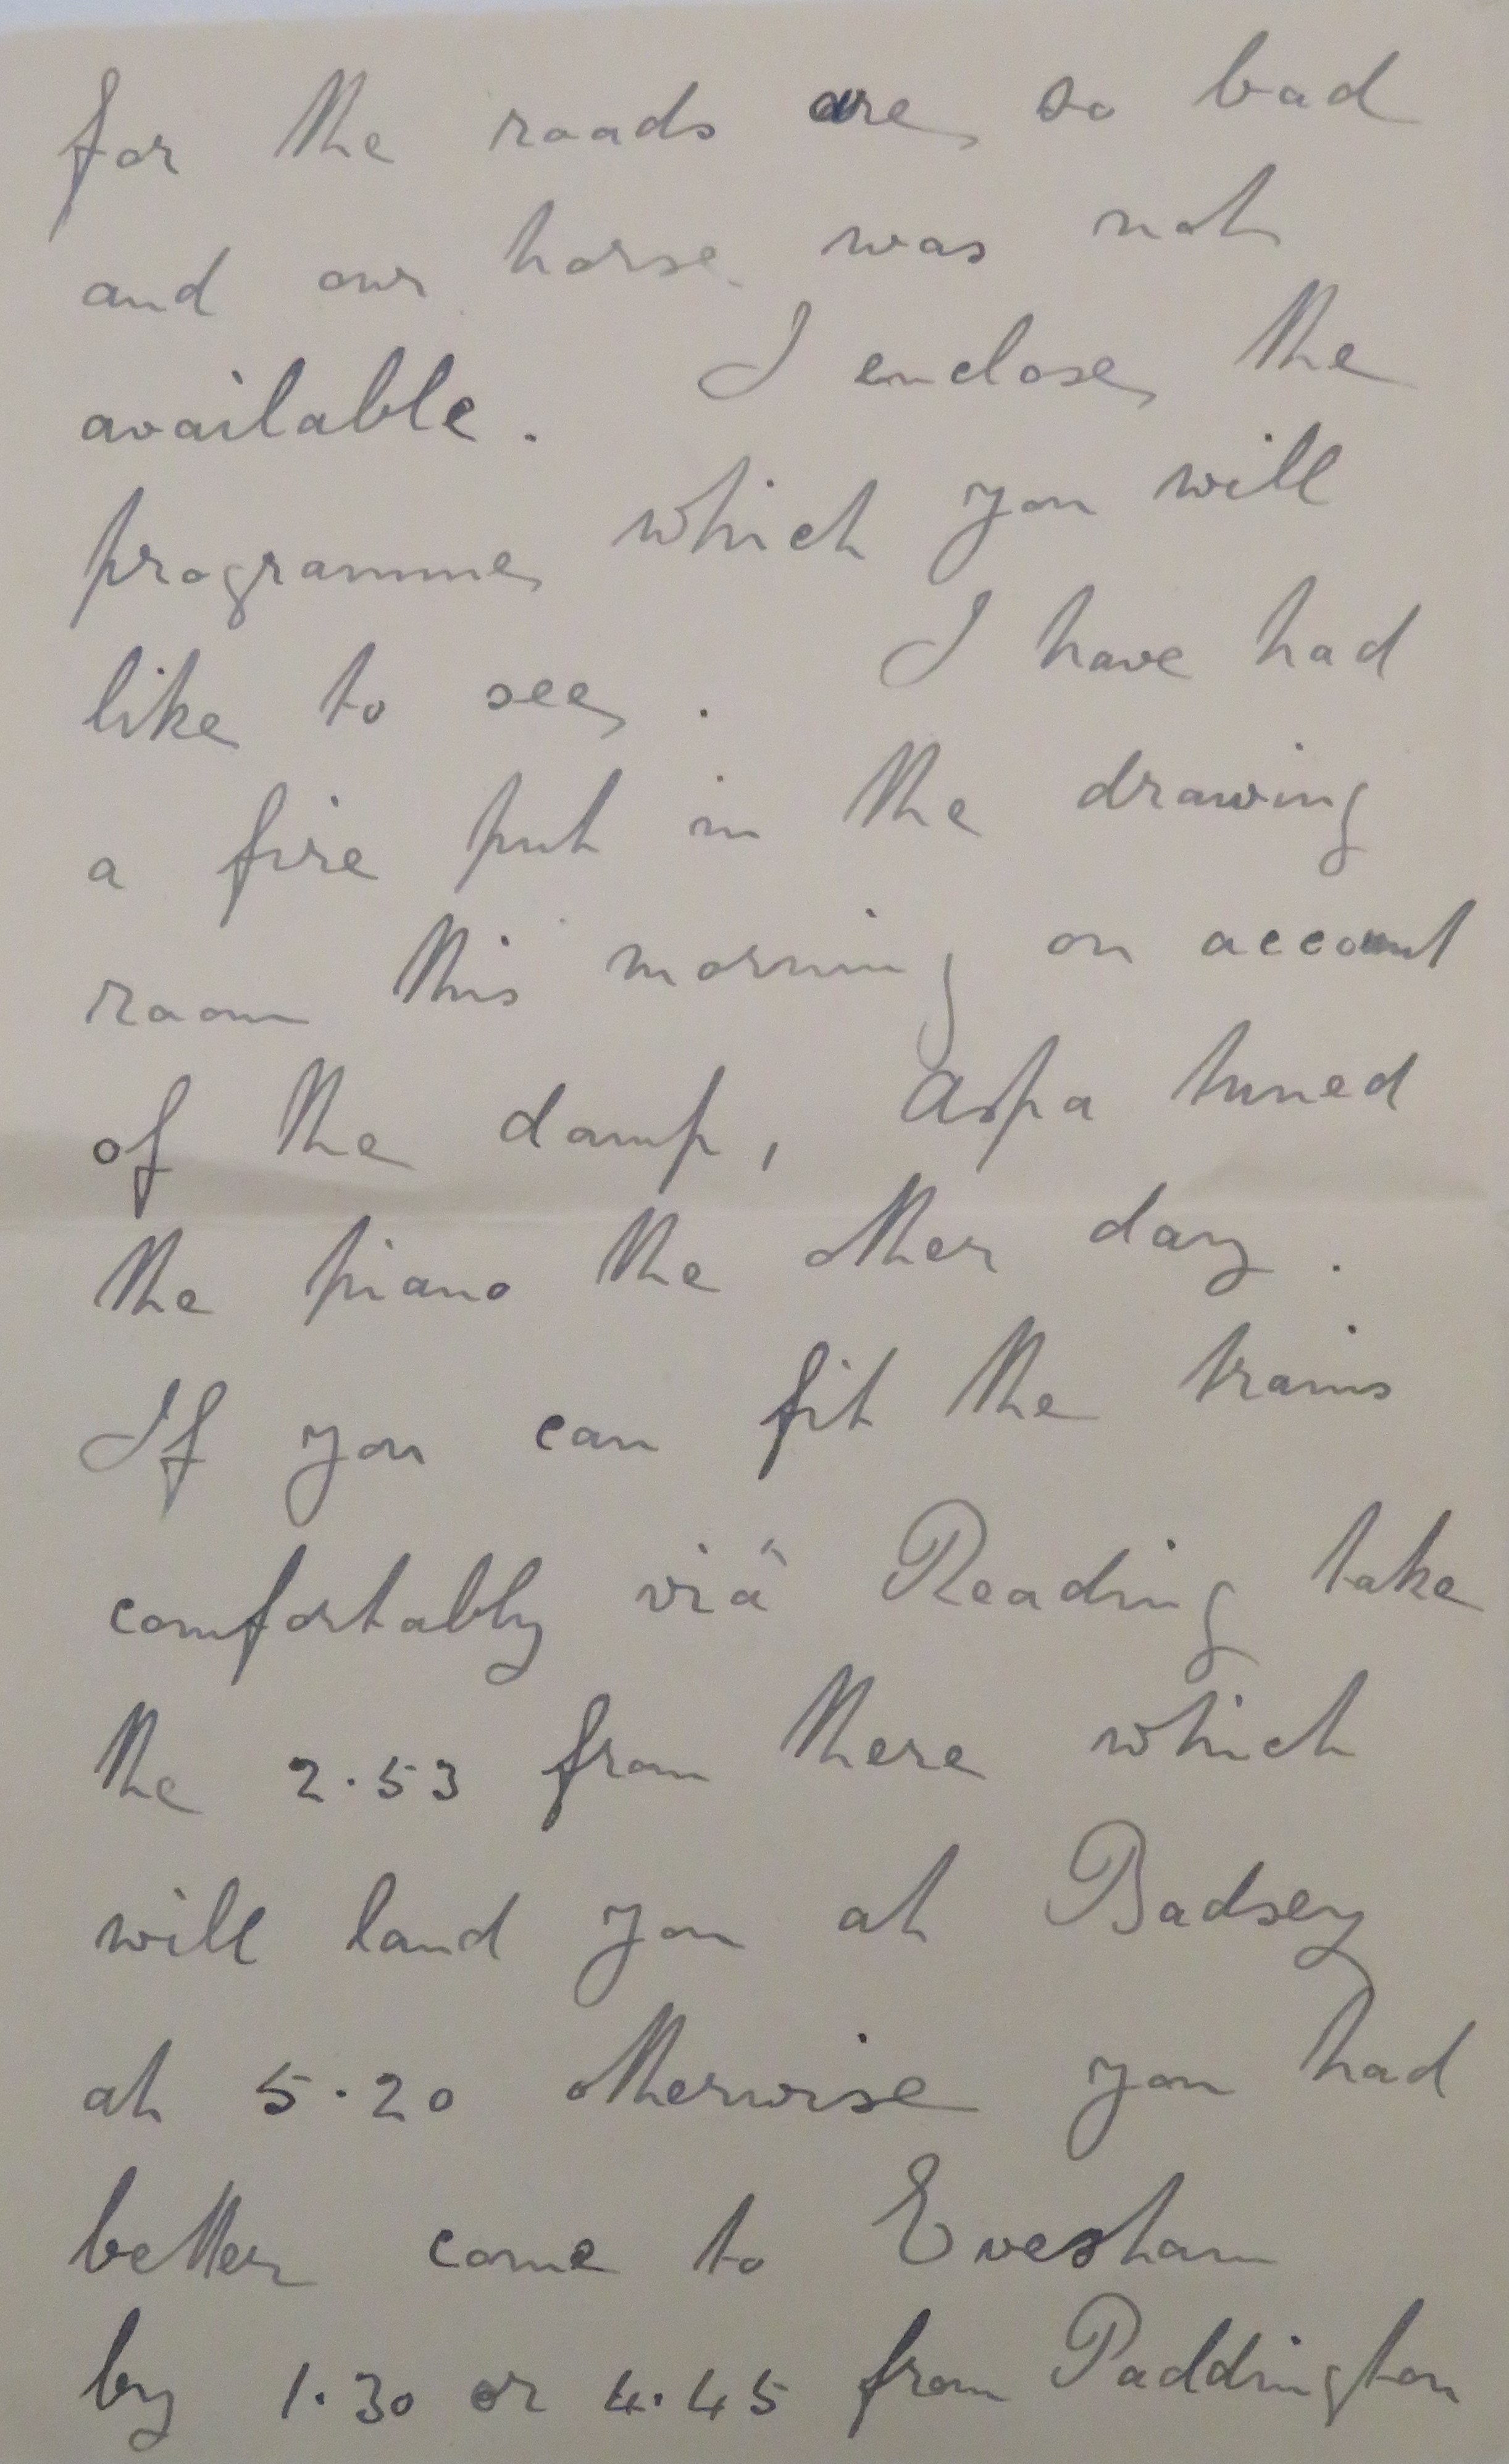 for the roads are so bad
and our horse was not
available. I enclose the
programme which you will
like to see. I have had
a fire put in the drawing
room this morning on account
of the damp, Aspa tuned
the piano the other day.
If you can fit the trains
comfortably viâ Reading take
the 2.53 from there which
will land you at Badsey
at 5.20 otherwise you had
better come to Evesham
by 1.30 or 4.45 from Paddington